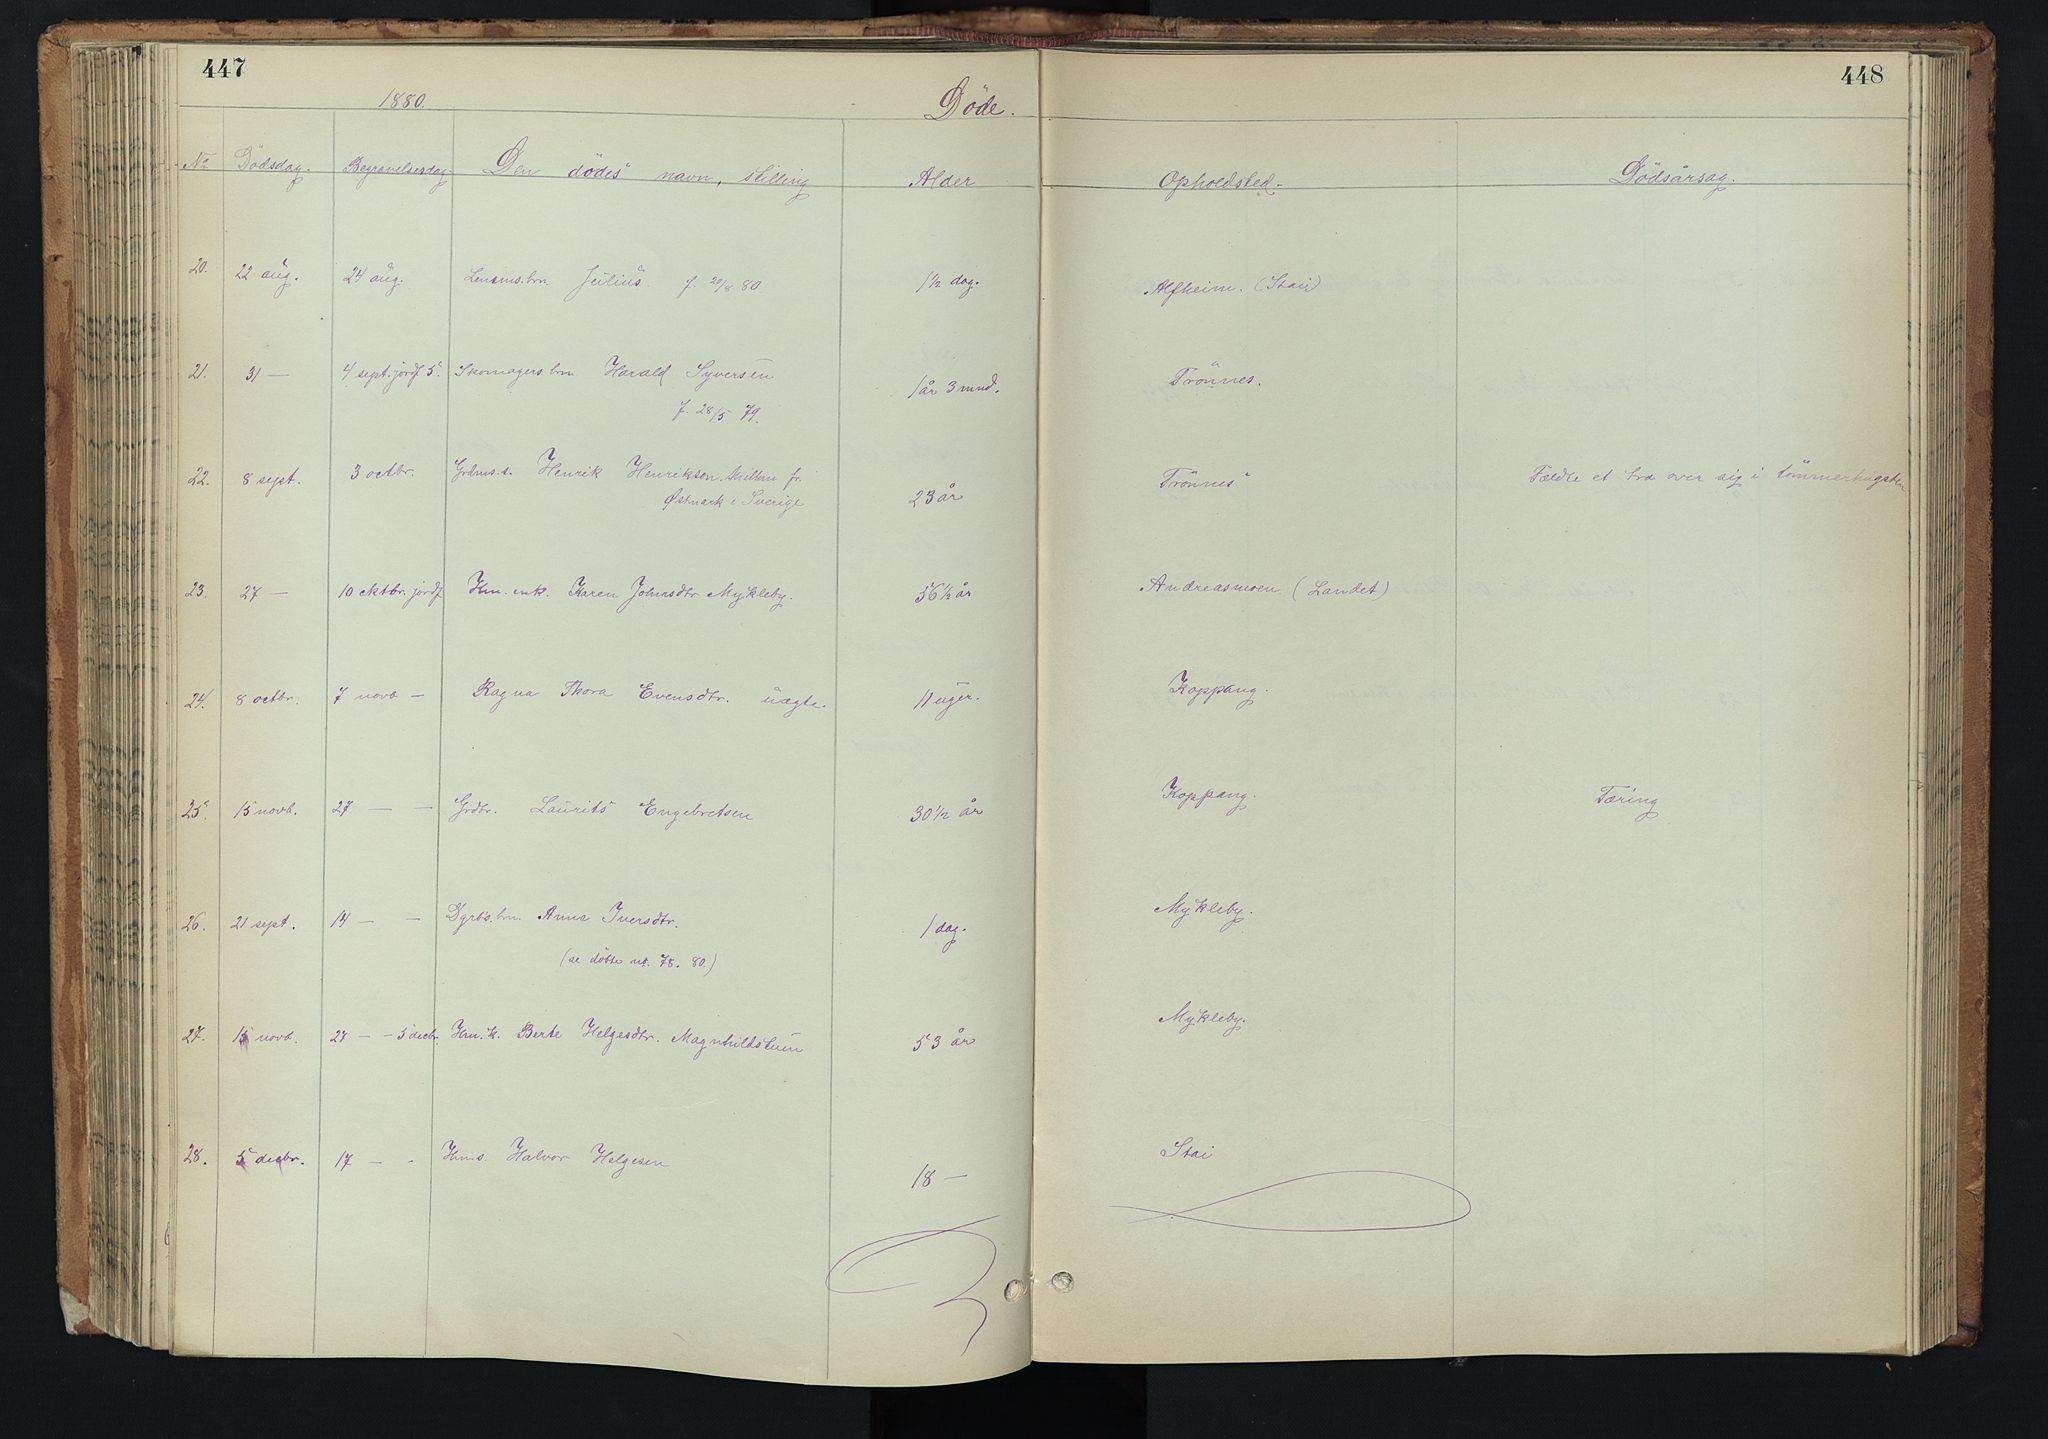 447
448
1880.
Döde.
No Dödsdag. Begravelsesdag. Den dödes navn, stilling Alder Opholdsted. Dödsårsag.
20. 22 aug. 24 aug. Lensms. brn Julius f. 20/8 80 1½ dag. Alfheim. (Stai)
21. 31 — 4 sept. jordf 5. Skomagers. brn Harald Syversen 1 år 3 mnd. Trönnes.
f. 28/5 79.
22. 8 sept. 3 octbr. Grdms. s. Henrik Henrikson fr. 23 år Trönnes Fældte et træ over sig i tömmerhugsten
Østmark i Sverige
23. 27 — 10 oktbr. jordf Hm. enk. Karen Johnsdtr Mykleby. 56½ år Andreasmoen (Landet)
24. 8 octbr. 7 novb — Ragna Thora Evensdtr. uægte. 11 uger. Koppang.
25. 15 novb. 27 — — Grdbr. Laurits Engebretsen 30½ år Koppang. Tæring
26. 21 sept. 14 — — Dgrbs. brn. Anne Iversdtr. 1 dag. Mykleby.
(se döbte no. 78. 80.)
27. 15 novb. 27 — - 5 decbr. Hm. k. Berte Helgesdtr. Magnhildstuen 53 år Mykleby.
28. 5 decbr. 17 — - Hms. Halvor Helgesen 18 — Stai